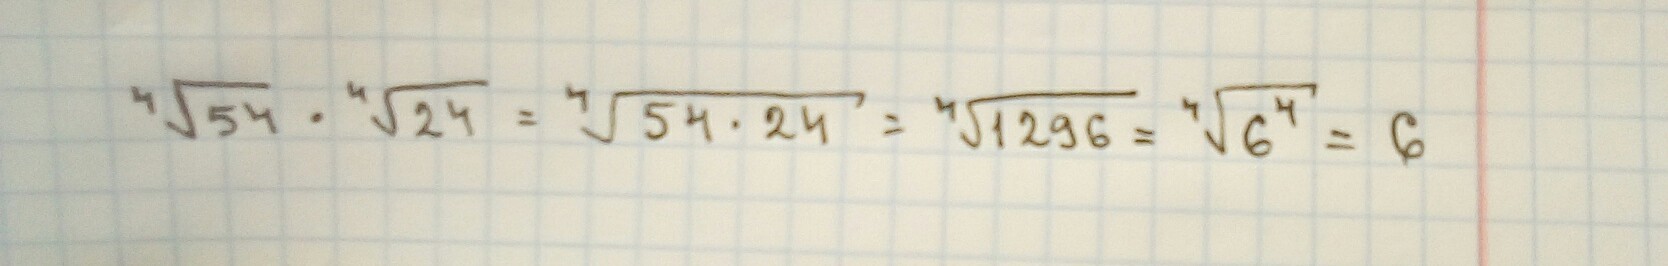 ⁴√54 · ⁴√24 = ⁴√54 · 24 = ⁴√1296 = ⁴√6⁴ = 6